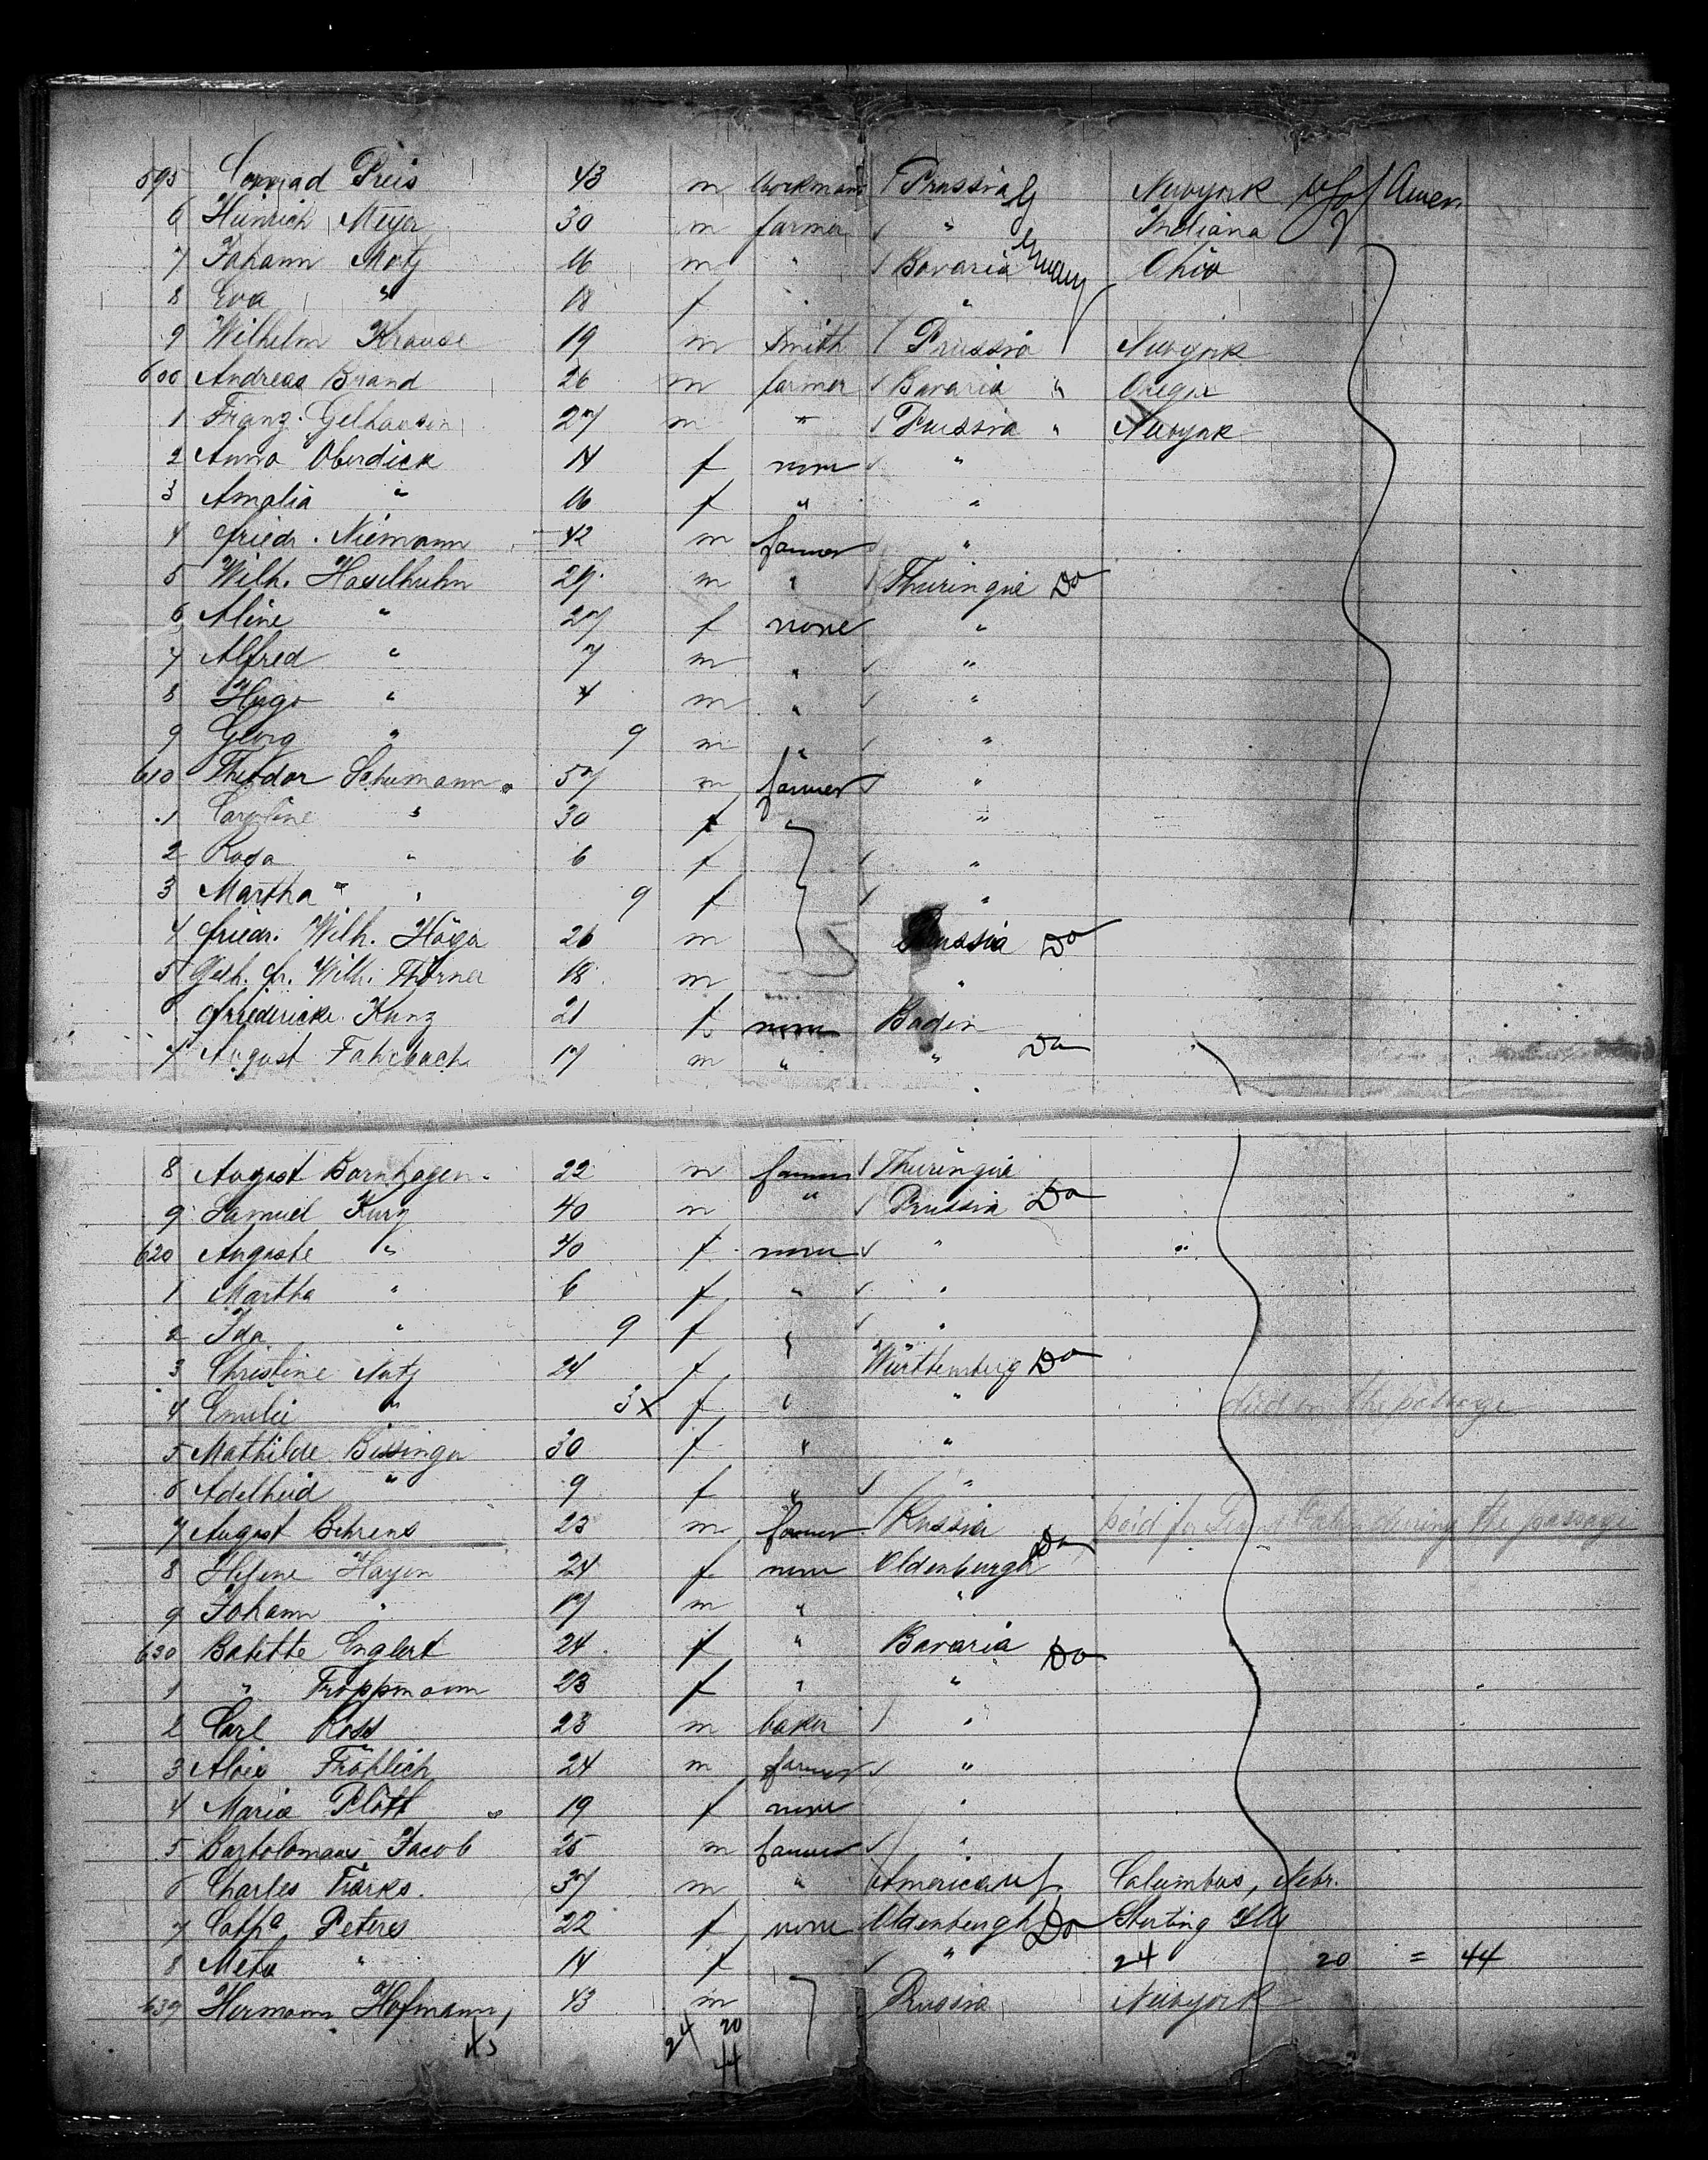 595 Conrad Preis 43 m workman Prussia G Newyork U S of Amer.
6 Heinrich Meyer 30 m farmer " Indiana
7 Johann Motz 16 m " Bavaria Ohio
8 Eva " 18 f " "
9 Wilhelm Krause 19 m smith Prussia Newyork
600 Andreas Brand 26 m farmer Bavaria " Oregon
1 Franz Gelhausen 27 m " Prussia " Newyork
2 Anna Oberdick 14 f none "
3 Amalia " 16 f " "
4 Friedr. Niemann 42 m farmer "
5 Wilh. Haselhuhn 29 m " Thuringia Do
6 Aline " 27 f none "
7 Alfred " 7 m " "
8 Hugo " 4 m " "
9 Georg " 9 m " "
610 Theodor Schumann 57 m farmer "
1 Caroline " 30 f "
2 Rosa " 6 f "
3 Martha " 9 f "
4 Friedr. Wilh. Häger 26 m Prussia Do
5 Fr. Wilh. Thörner 18 m "
Friedericke Kunz 21 f none Baden
7 August Fahrbach 17 m " " Do
8 August Bornhagen 22 m farmer Thuringia
9 Samuel Kurz 40 m " Prussia Do
620 Auguste " 40 f none " "
1 Martha " 6 f " "
2 Ida " 9 f " "
3 Christine Nutz 24 f Württemberg Do
4 Emilie " 3 x f " " died on the passage
5 Mathilde Bissinger 30 f " "
6 Adelheid " 9 f " "
7 August Behrens 23 m farmer Russia paid for during the passage
8 Helene Hayen 24 f none Oldenburgh Do
9 Johann " 17 m " "
630 Babette Englert 24 f " Bavaria Do
1 " Troppmann 23 f " "
2 Carl Rost 23 m baker "
3 Alois Fröhlich 24 m farmer "
4 Maria Plött 19 f none "
5 Bartolomaus Jacob 25 m farmer "
6 Charles Tiarks. 37 m " America US Columbus, Nebr.
7 Catha Peters 22 f none Oldenburgh Do Sterling Ills
8 Meta " 14 f " 24 20 = 44
639 Hermann Hofmann, 43 m Prussia Newyork
45 24 20
44